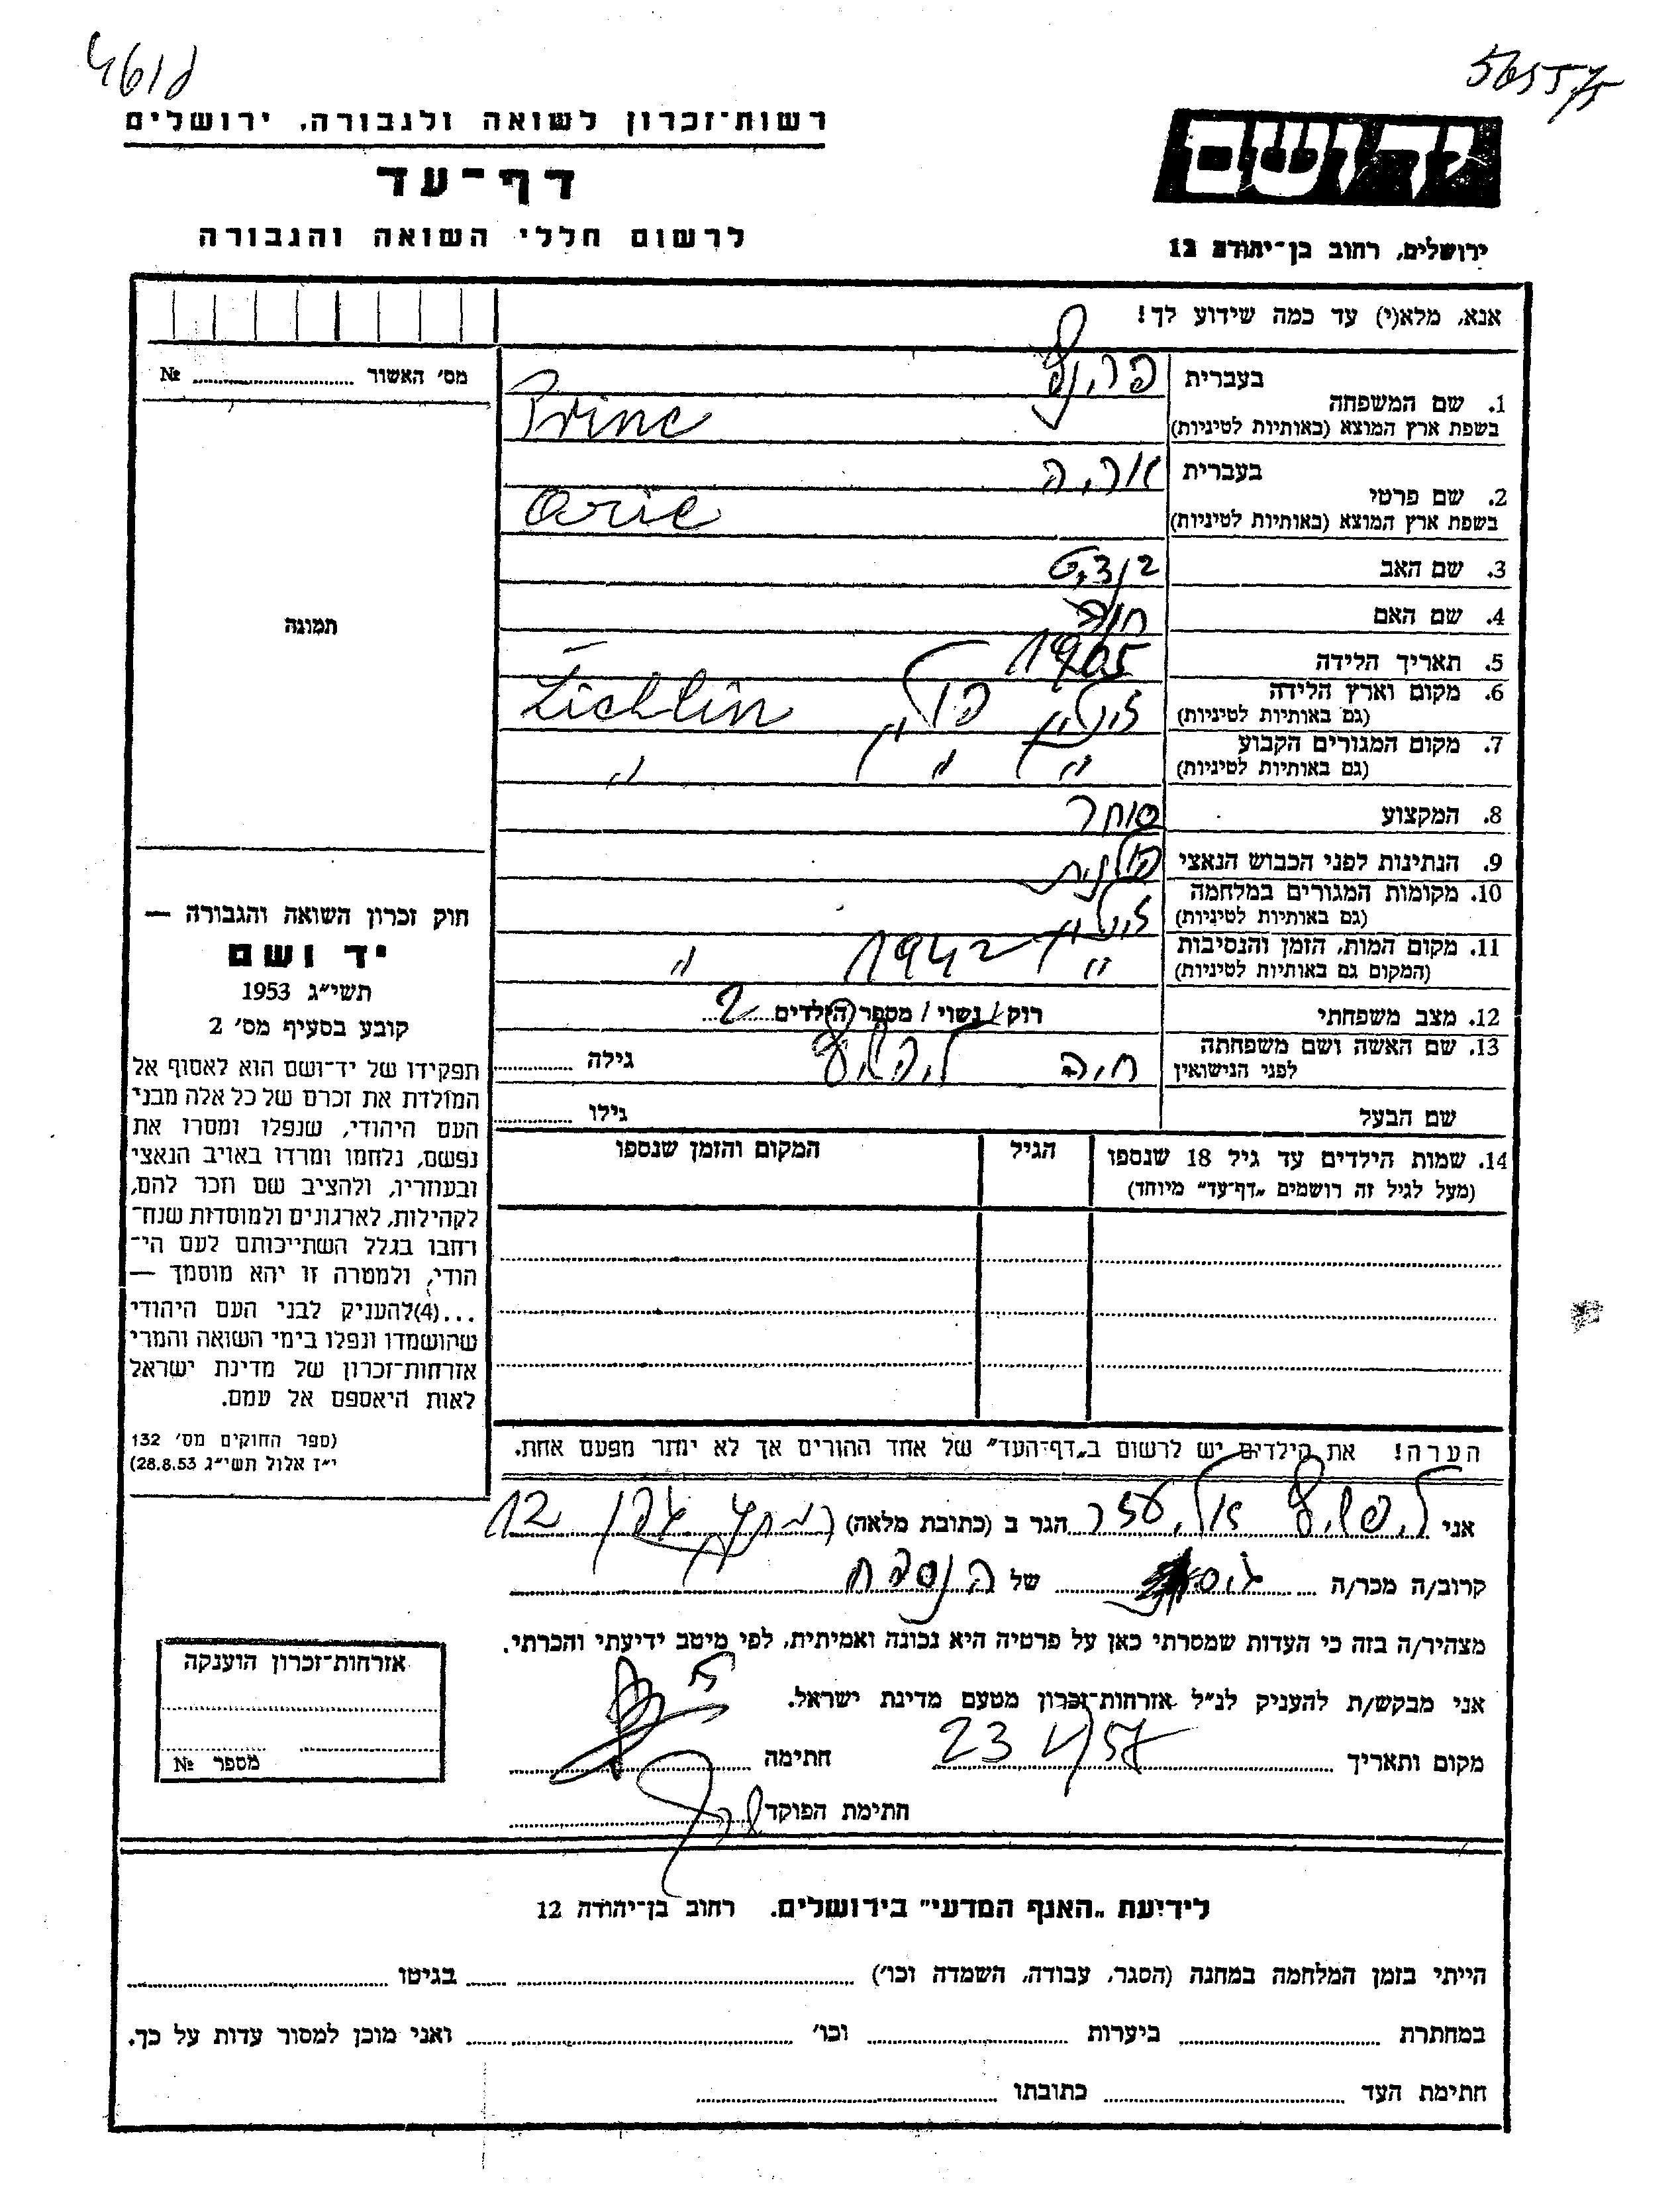 רשות־זכרון לשואה ולגבורה, ירושלים
דף־עד
לרשום חללי השואה והגבורה
ירושלים, רחוב בן־יהודה 12
אנא, מלא(י) עד כמה שידוע לך!
1. שם המשפחה
בעברית
פרינץ
בשפת ארץ המוצא (באותיות לטיניות)
Princ
2. שם פרטי
בעברית
אריה
בשפת ארץ המוצא (באותיות לטיניות)
Arie
3. שם האב
4. שם האם חוה
5. תאריך הלידה 1905
6. מקום וארץ הלידה
(גם באותיות לטיניות) פולין Zichlin
7. מקום המגורים הקבוע
(גם באותיות לטיניות) " " "
8. המקצוע סוחר
9. הנתינות לפני הכבוש הנאצי פולנית
10. מקומות המגורים במלחמה
(גם באותיות לטיניות)
11. מקום המות, הזמן והנסיבות
(המקום גם באותיות לטיניות) " 1942 "
12. מצב משפחתי רוק / נשוי / מספר הילדים 2
13. שם האשה ושם משפחתה
לפני הנישואין חיה ליפשיץ גילה
שם הבעל גילו
14. שמות הילדים עד גיל 18 שנספו
(מעל לגיל זה רושמים „דף־עד" מיוחד)
הגיל
המקום והזמן שנספו
הערה! את הילדים יש לרשום ב„דף־העד" של אחד ההורים אך לא יותר מפעם אחת.
אני ליפשיץ אליעזר הגר ב (כתובת מלאה) 12
קרוב/ה מכר/ה גיסו של הנספה
מצהיר/ה בזה כי העדות שמסרתי כאן על פרטיה היא נכונה ואמיתית, לפי מיטב ידיעתי והכרתי.
אני מבקש/ת להעניק לנ"ל אזרחות־זכרון מטעם מדינת ישראל.
מקום ותאריך 23 V 57 חתימה
חתימת הפוקד
מס' האשור №
תמונה
חוק זכרון השואה והגבורה —
יד ושם
תשי"ג 1953
קובע בסעיף מס' 2
תפקידו של יד־ושם הוא לאסוף אל
המולדת את זכרם של כל אלה מבני
העם היהודי, שנפלו ומסרו את
נפשם, נלחמו ומרדו באויב הנאצי
ובעוזריו, ולהציב שם וזכר להם,
לקהילות, לארגונים ולמוסדות שנח־
רחבו בגלל השתייכותם לעם הי־
הודי, ולמטרה זו יהא מוסמך —
...(4)להעניק לבני העם היהודי
שהושמדו ונפלו בימי השואה והמרי
אזרחות־זכרון של מדינת ישראל
לאות היאספם אל עמם.
(ספר החוקים מס' 132
י"ז אלול תשי"ג 28.8.53)
אזרחות־זכרון הוענקה
מספר №
לידיעת „האנף המדעי" בירושלים. רחוב בן־יהודה 12
הייתי בזמן המלחמה במחנה (הסגר, עבודה, השמדה וכו') בגיטו
במחתרת ביערות וכו' ואני מוכן למסור עדות על כך.
חתימת העד כתובתו